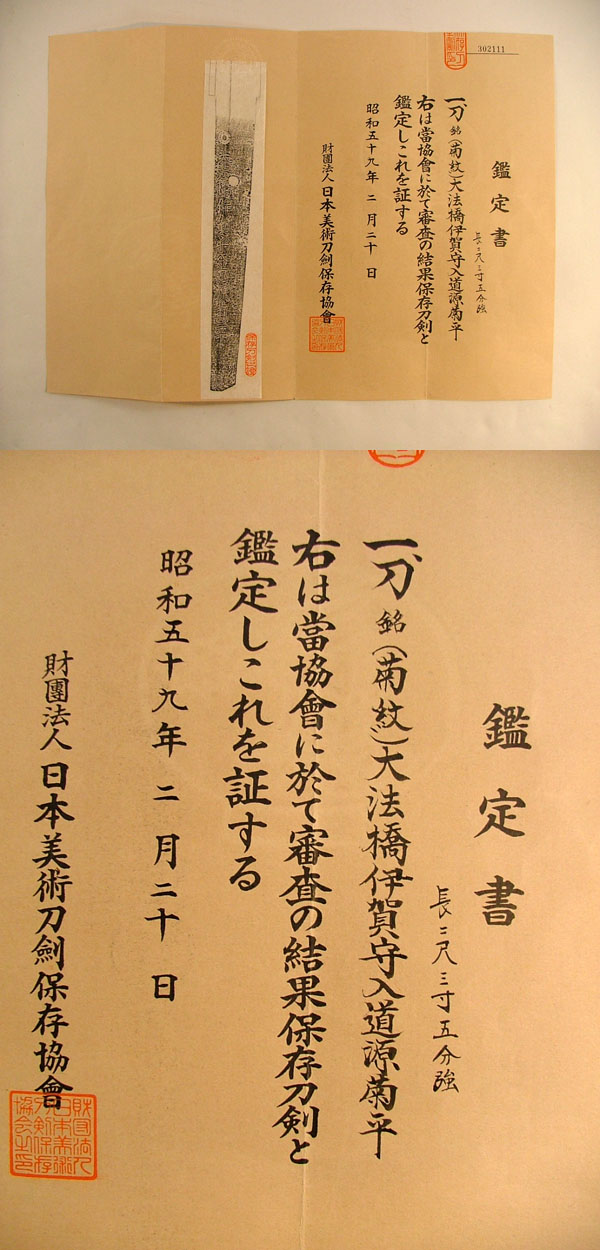 302111
鑑定書
長二尺三寸五分強
一、刀 銘(菊紋)大法橋伊賀守入道源菊平
右は當協會に於て審査の結果保存刀剣と
鑑定しこれを証する
昭和五十九年 二月二十日
財團法人 日本美術刀劍保存協會
鑑定書
長二尺三寸五分強
一、刀 銘(菊紋)大法橋伊賀守入道源菊平
右は當協會に於て審査の結果保存刀剣と
鑑定しこれを証する
昭和五十九年 二月二十日
財團法人 日本美術刀劍保存協會